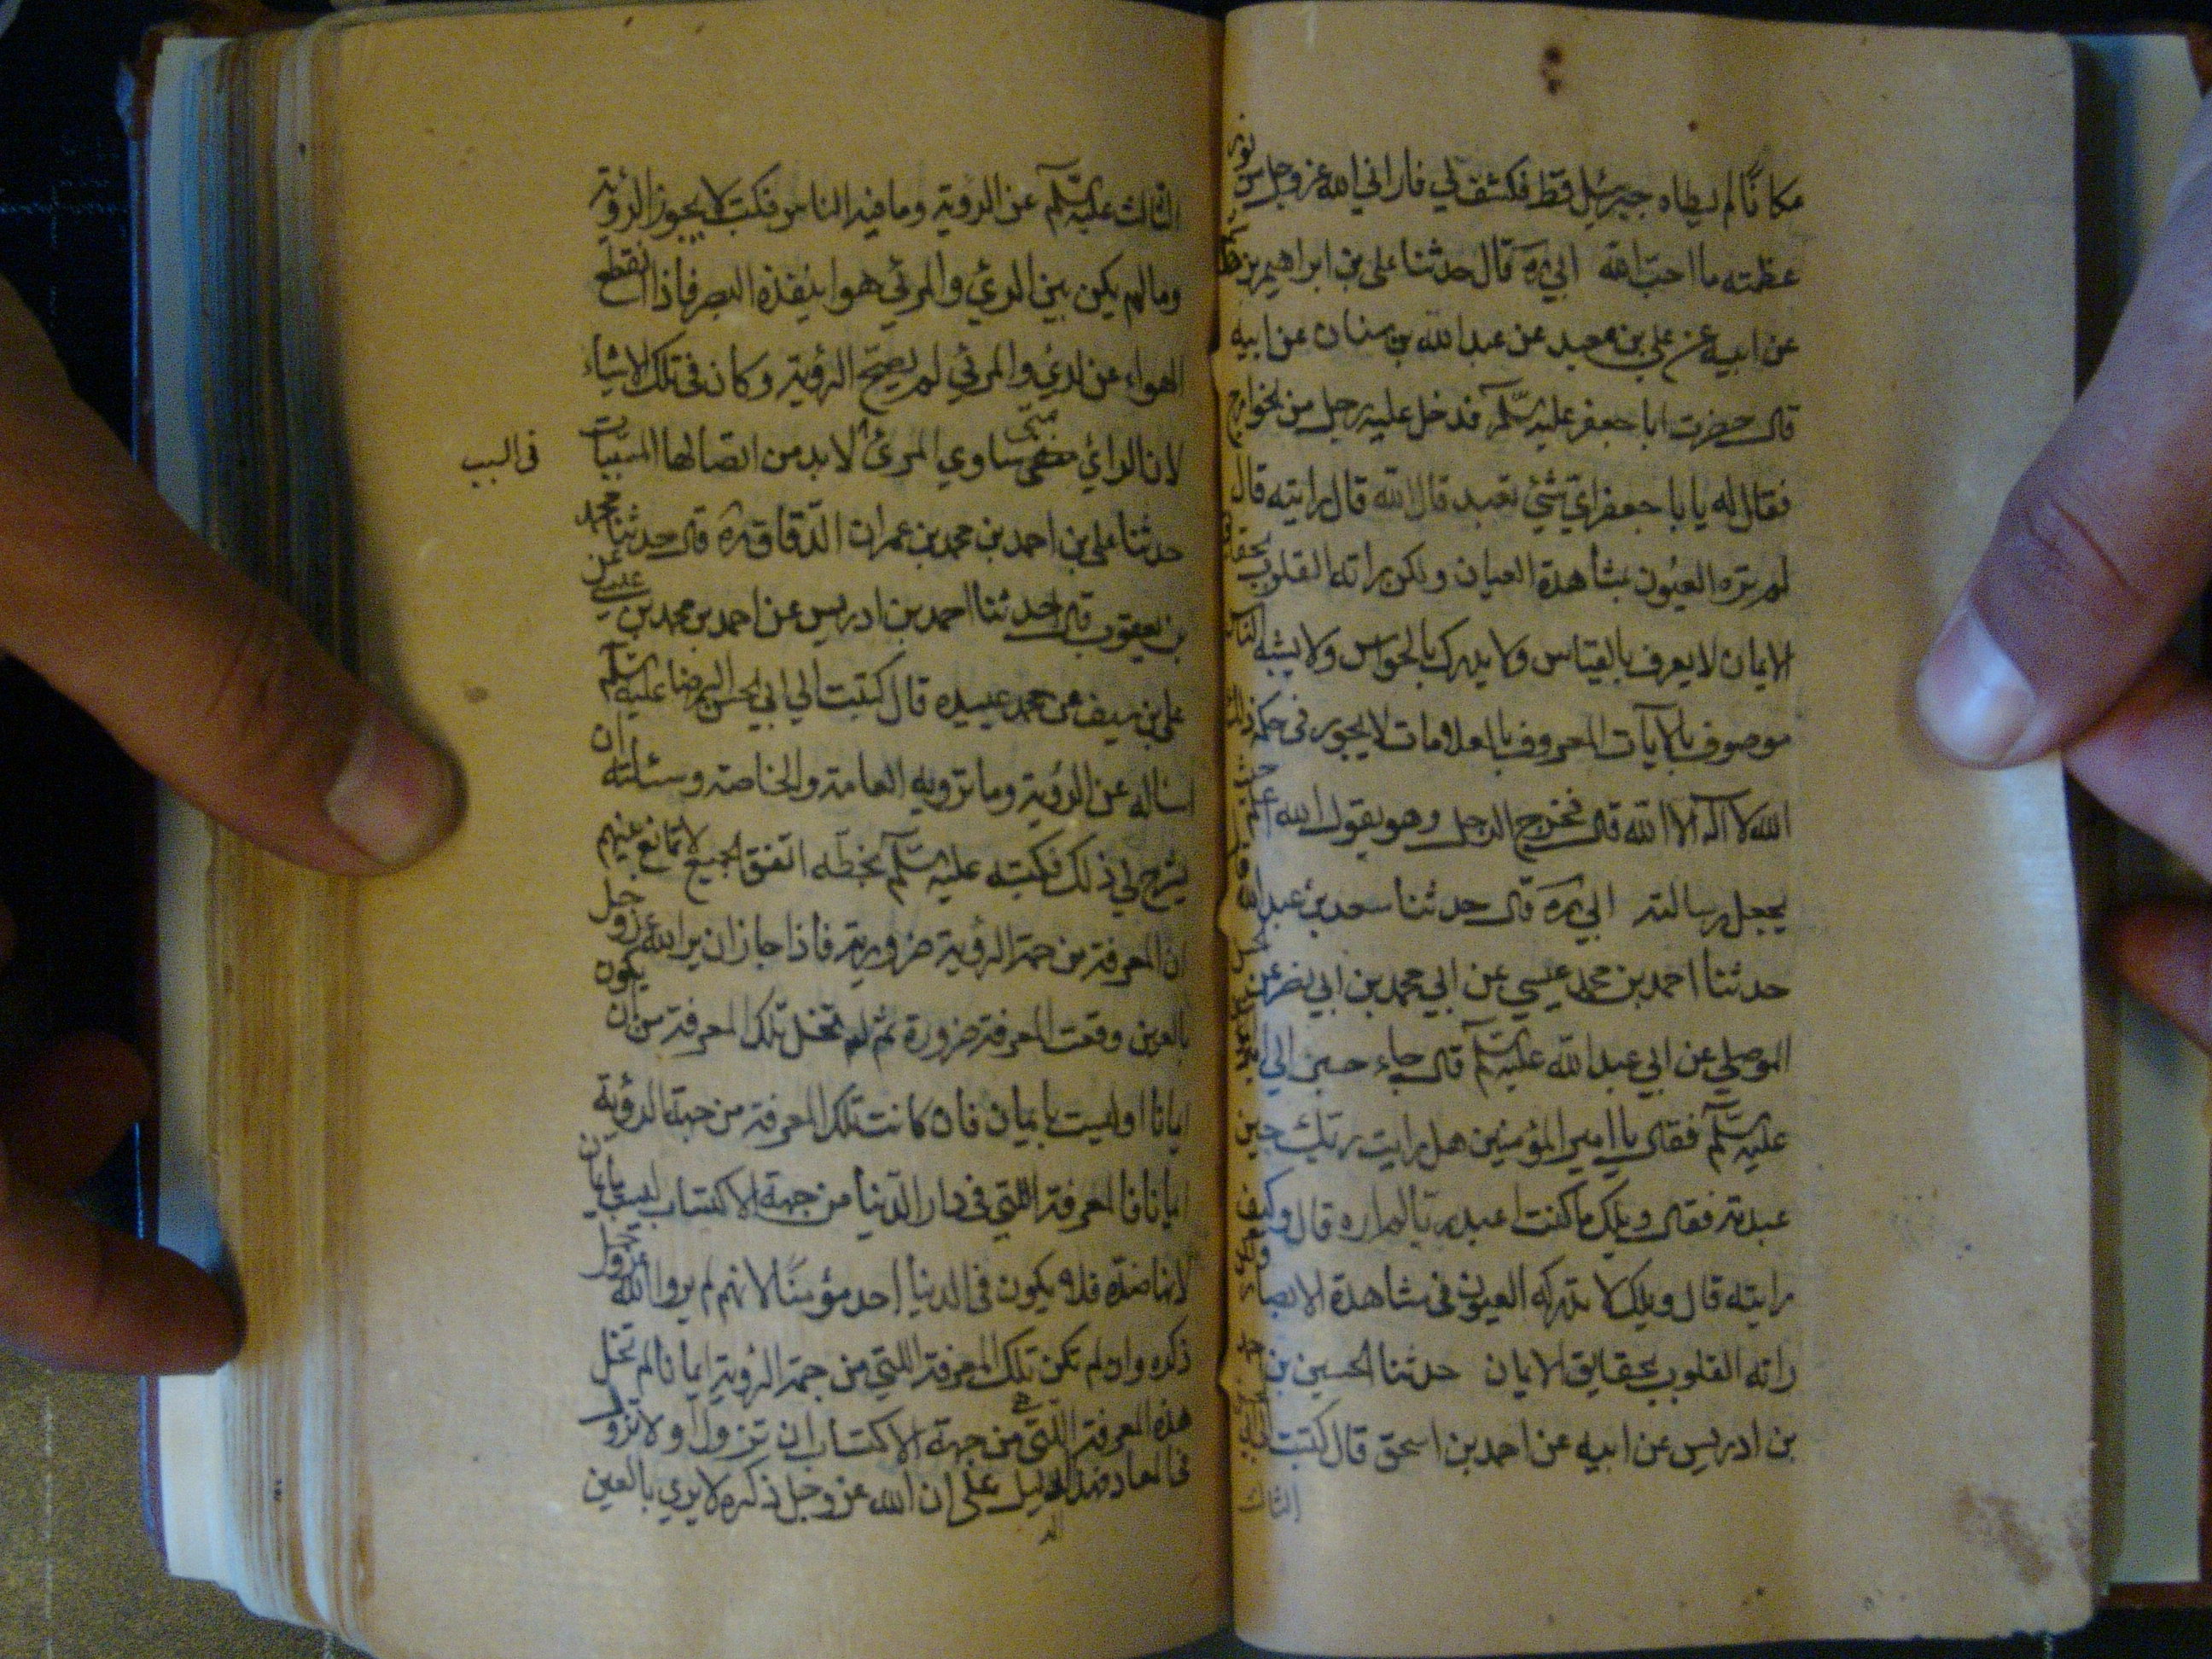 مكانا لم يطاه جبرئيل قط فكشف لي فاراني الله عز وجل من نور
عظمته ما احب الله ابي ره قال حدثنا علي بن ابراهيم بن هاشم
عن ابيه عن علي بن معبد عن عبد الله بن سنان عن ابيه
قال حضرت ابا جعفر عليه السلم فدخل عليه رجل من الخوارج
فقال له يا با جعفر اي شئ تعبد قال الله قال رايته قال
لم تره العيون بمشاهدة العيان ولكن راته القلوب بحقايق
الايمان لا يعرف بالقياس ولا يدرك بالحواس ولا يشبه الناس
موصوف بالآيات المعروف بالعلامات لا يجور في حكمه ذلك
الله لا آله الا الله قال فخرج الرجل وهو يقول الله اعلم حيث
يجعل رسالته ابي ره قال حدثنا سعد بن عبد الله قال
حدثنا احمد بن محمد عيسي عن ابي محمد بن ابي نصر عن
الموصلي عن ابي عبد الله عليه السلم قال جاء حبر الي
عليه السلم فقال يا امير المؤمنين هل رايت ربك حين
عبدته فقال ويلك ما كنت اعبد ربا لم اره قال وكيف
رايته قال ويلك لا تدركه العيون في مشاهدة الابصار
راته القلوب بحقايق الايمان حدثنا الحسين بن
بن ادريس عن ابيه عن احمد بن اسحق قال كتبت
الثالث
الثالث عليه السلم عن الروية وما فيه الناس فكتب لا يجوز الرؤية
وما لم يكن بين الرئي والمرئي هوا ينفذه البصر فاذا انقطع
الهواء عن لرئي والمرئي لم يصح الرؤية وكان في تلك الاشياء
لان الرائي متى ساوي المرئ لا بد من اتصالها المسببات
في السبب
حدثنا علي بن احمد بن محمد بن عمران الدقاق ره قال حدثنا محمد
بن يعقوب قال حدثنا احمد بن ادريس عن احمد بن محمد بن عيسي عن
علي بن سيف عن محمد عبيده قال كتبت الي ابي الحسن الرضا عليه السلم
اساله عن الرؤية وما ترويه العامة والخاصة وسئلته ان
يشرح لي ذلك فكتبه عليه السلم بخطه اتفق الجميع لا تمانع بينهم
ان المعرفة من جهة الرؤية ضرورية فاذا جاز ان يرا الله عز وجل
بالعين وقعت المعرفة ضرورة ثم لم تخل تلك المعرفة من ان يكون
ايمانا اوليست بايمان فان كانت تلك المعرفة من جهة الرؤية
ايمانا فالمعرفة اللتي في دار الدنيا من جهة الاكتساب ليست بايمان
لانها ضده فلا يكون في الدنيا احد مؤمنا لانهم لم يروا الله عز وجل
ذكره وان لم تكن تلك المعرفة اللتي من جهة الرؤية ايمانا لم تخل
هذه المعرفة اللتي من جهة الاكتساب ان تزول اولا تزول
في المعاد فهذا دليل علي ان الله عز وجل ذكره لا يري بالعين